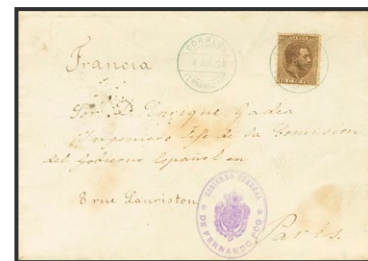 Francia
CORREOS
Sor. D. Enrique Gadea
Ingeniero Jefe de la Comision
del Gobierno Español en
8 rue Lauriston
Paris.
GOBIERNO GENERAL
DE FERNANDO POO